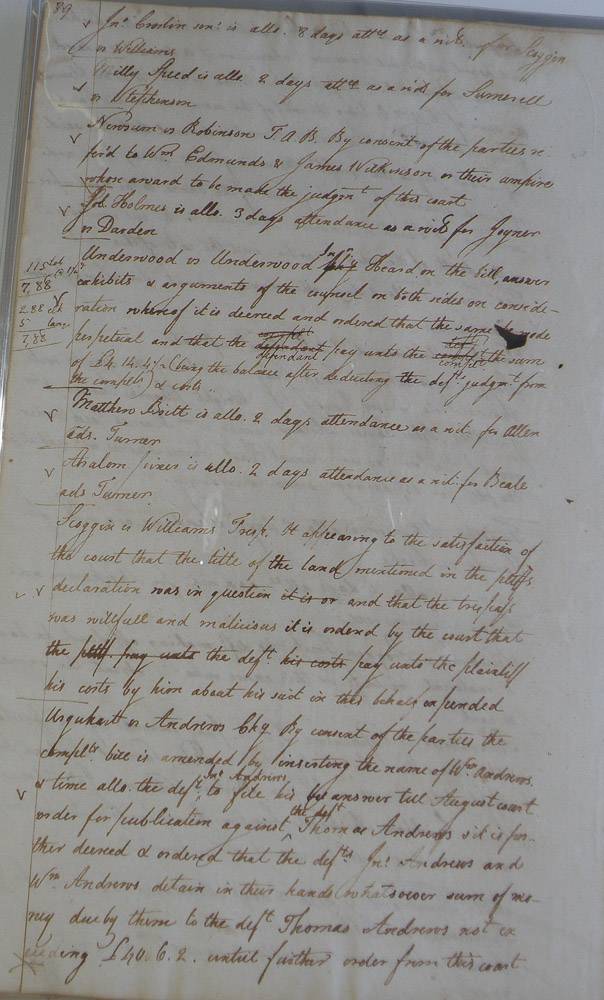 89
Jno. Croslin senr. is allo. 8 days attce as a witt. for Scoggin
vs Williams
Milly Speed is allo. 2 days attce as a witt for Sumerell
vs Stephenson
Newsum vs Robinson T. A. B. By consent of the parties re-
fer'd to Wm. Edmunds & James Wilkinson or their umpire
whose award to be made the judgmt of this court
Job. Holmes is allo. 3 days attendance as a witt. for Joyner
vs Darden
Underwood vs Underwood Inj'y Heard on the bill, answer
115 tob
exhibits & arguments of the counsel on both sides on conside-
7,88
ration whereof it is decreed and ordered that the same be made
2.88 clk
5 law
7,88
perpetual and that the defendant pay unto the compts the sum
of £4. 14. 4½ (being the balance after deducting the deft. judgmt. from
the complts) & costs
Matthew is allo. 2 days attendance as a wit. for Allen
ads. Turner
Absalom is allo. 2 days attendance as a wit. for Beale
ads Turner
Scoggin vs Williams Tresp. It appearing to the satisfaction of
the court that the title of the land mentioned in the pltffs
declaration was in question it is or and that the trespass
was willfull and malicious it is orderd by the court that
the pltff. pay unto the deft. his costs pay unto the plaintiff
his costs by him about his suit in this behalf expended
Urquhart vs Andrews Chy By consent of the parties the
complts bill is amended by inserting the name of Wm Andrews
& time allo. the deft. Jno Andrews to file his answer till August court
order for publication against the deft Thomas Andrews & it is fur-
ther decreed & ordered that the defts Jno. Andrews and
Wm Andrews detain in their hands whatsoever sum of mo-
ney due by them to the deft Thomas Andrews not ex
ceeding £40. 6. 2. until further order from this court